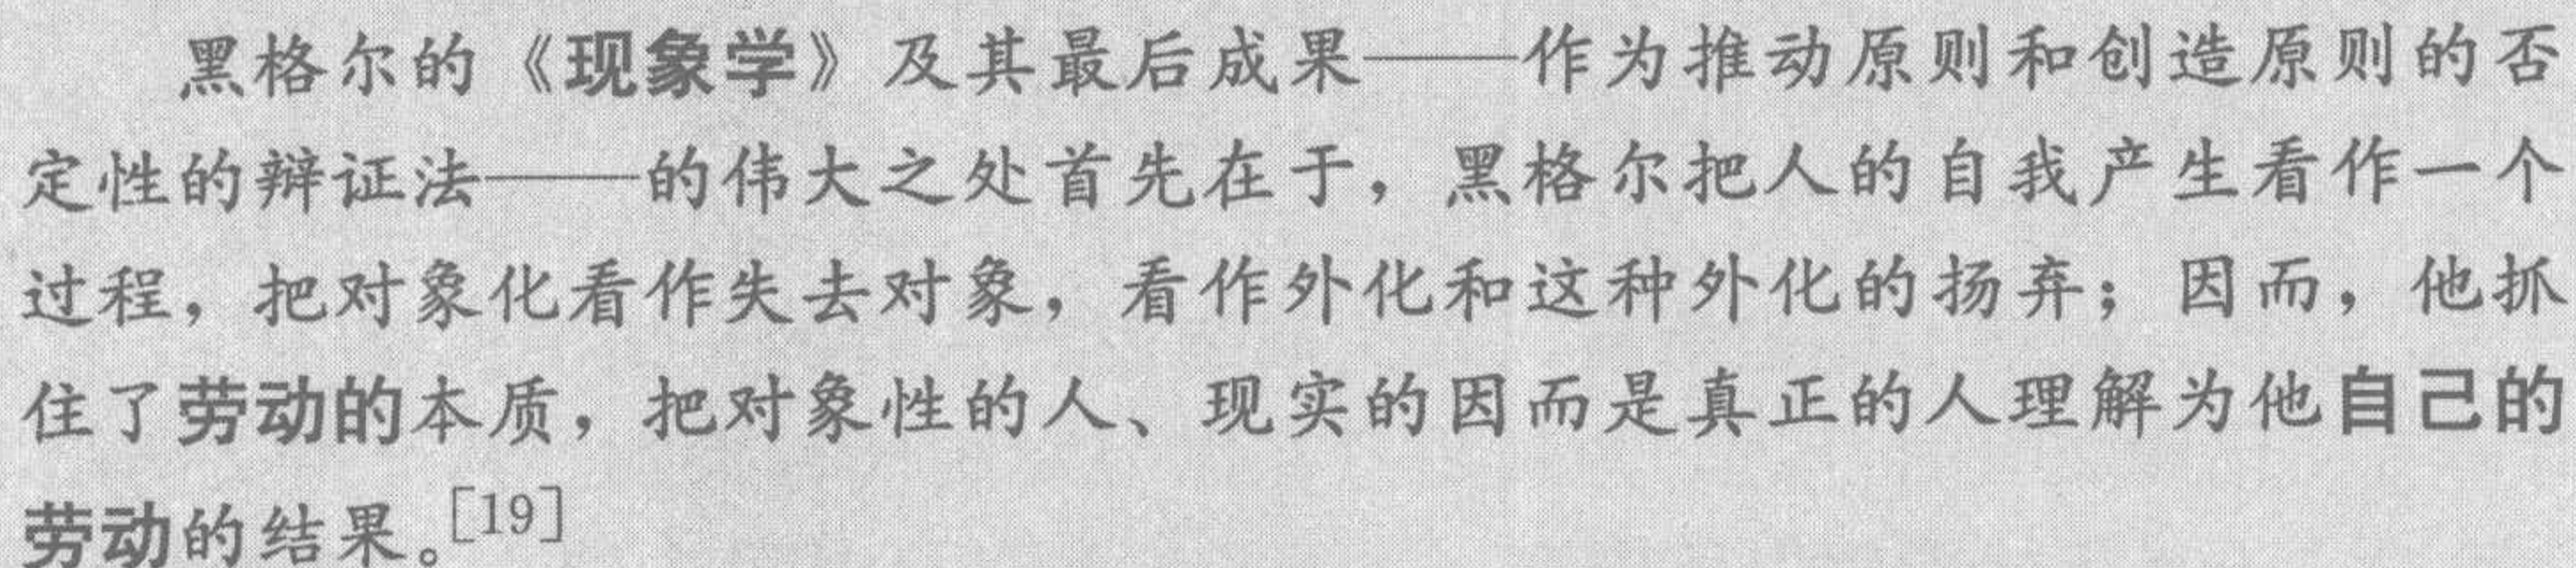 黑格尔的《现象学》及其最后成果——作为推动原则和创造原则的否
定性的辩证法——的伟大之处首先在于，黑格尔把人的自我产生看作一个
过程，把对象化看作失去对象，看作外化和这种外化的扬弃；因而，他抓
住了劳动的本质，把对象性的人、现实的因而是真正的人理解为他自己的
劳动的结果。[19]